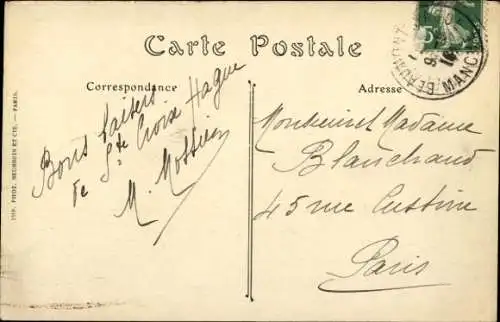 Carte Postale
Correspondance
Adresse
Bons baisers
de Ste Croix Hague
M.
Monsieur et Madame
Blanchard
45 rue Custine
Paris
IMP. PHOT. NEURDEIN ET CIE. — PARIS.
5
BEAUMONT MANCHE